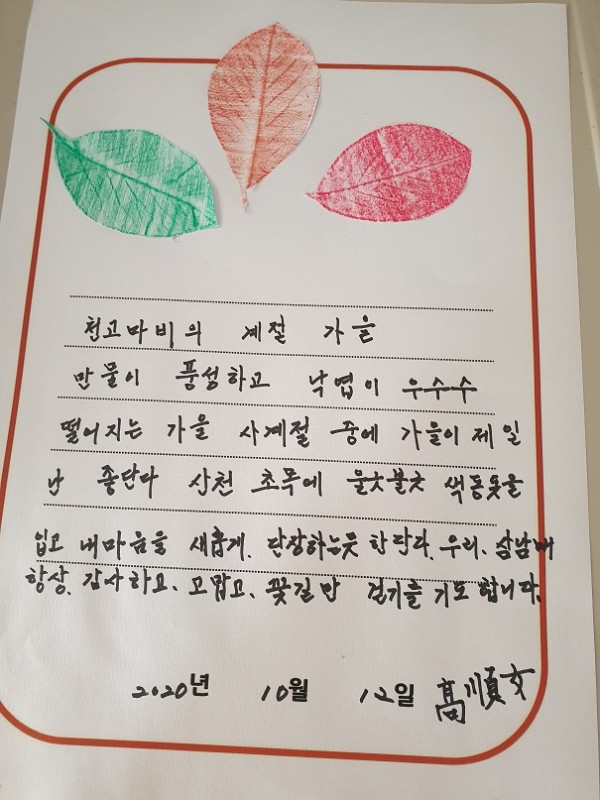 천고마비의 계절 가을
만물이 풍성하고 낙엽이 우수수
떨어지는 가을 사계절 중에 가을이 제일
난 좋단다 산천 초목에 울긋불긋 색동옷을
입고 내마음을 새롭게. 단장하는듯 한단다. 우리. 삼남매
항상. 감사하고. 고맙고. 꽃길만 걷기를 기도 합니다.
2020년 10월 12일 高順女